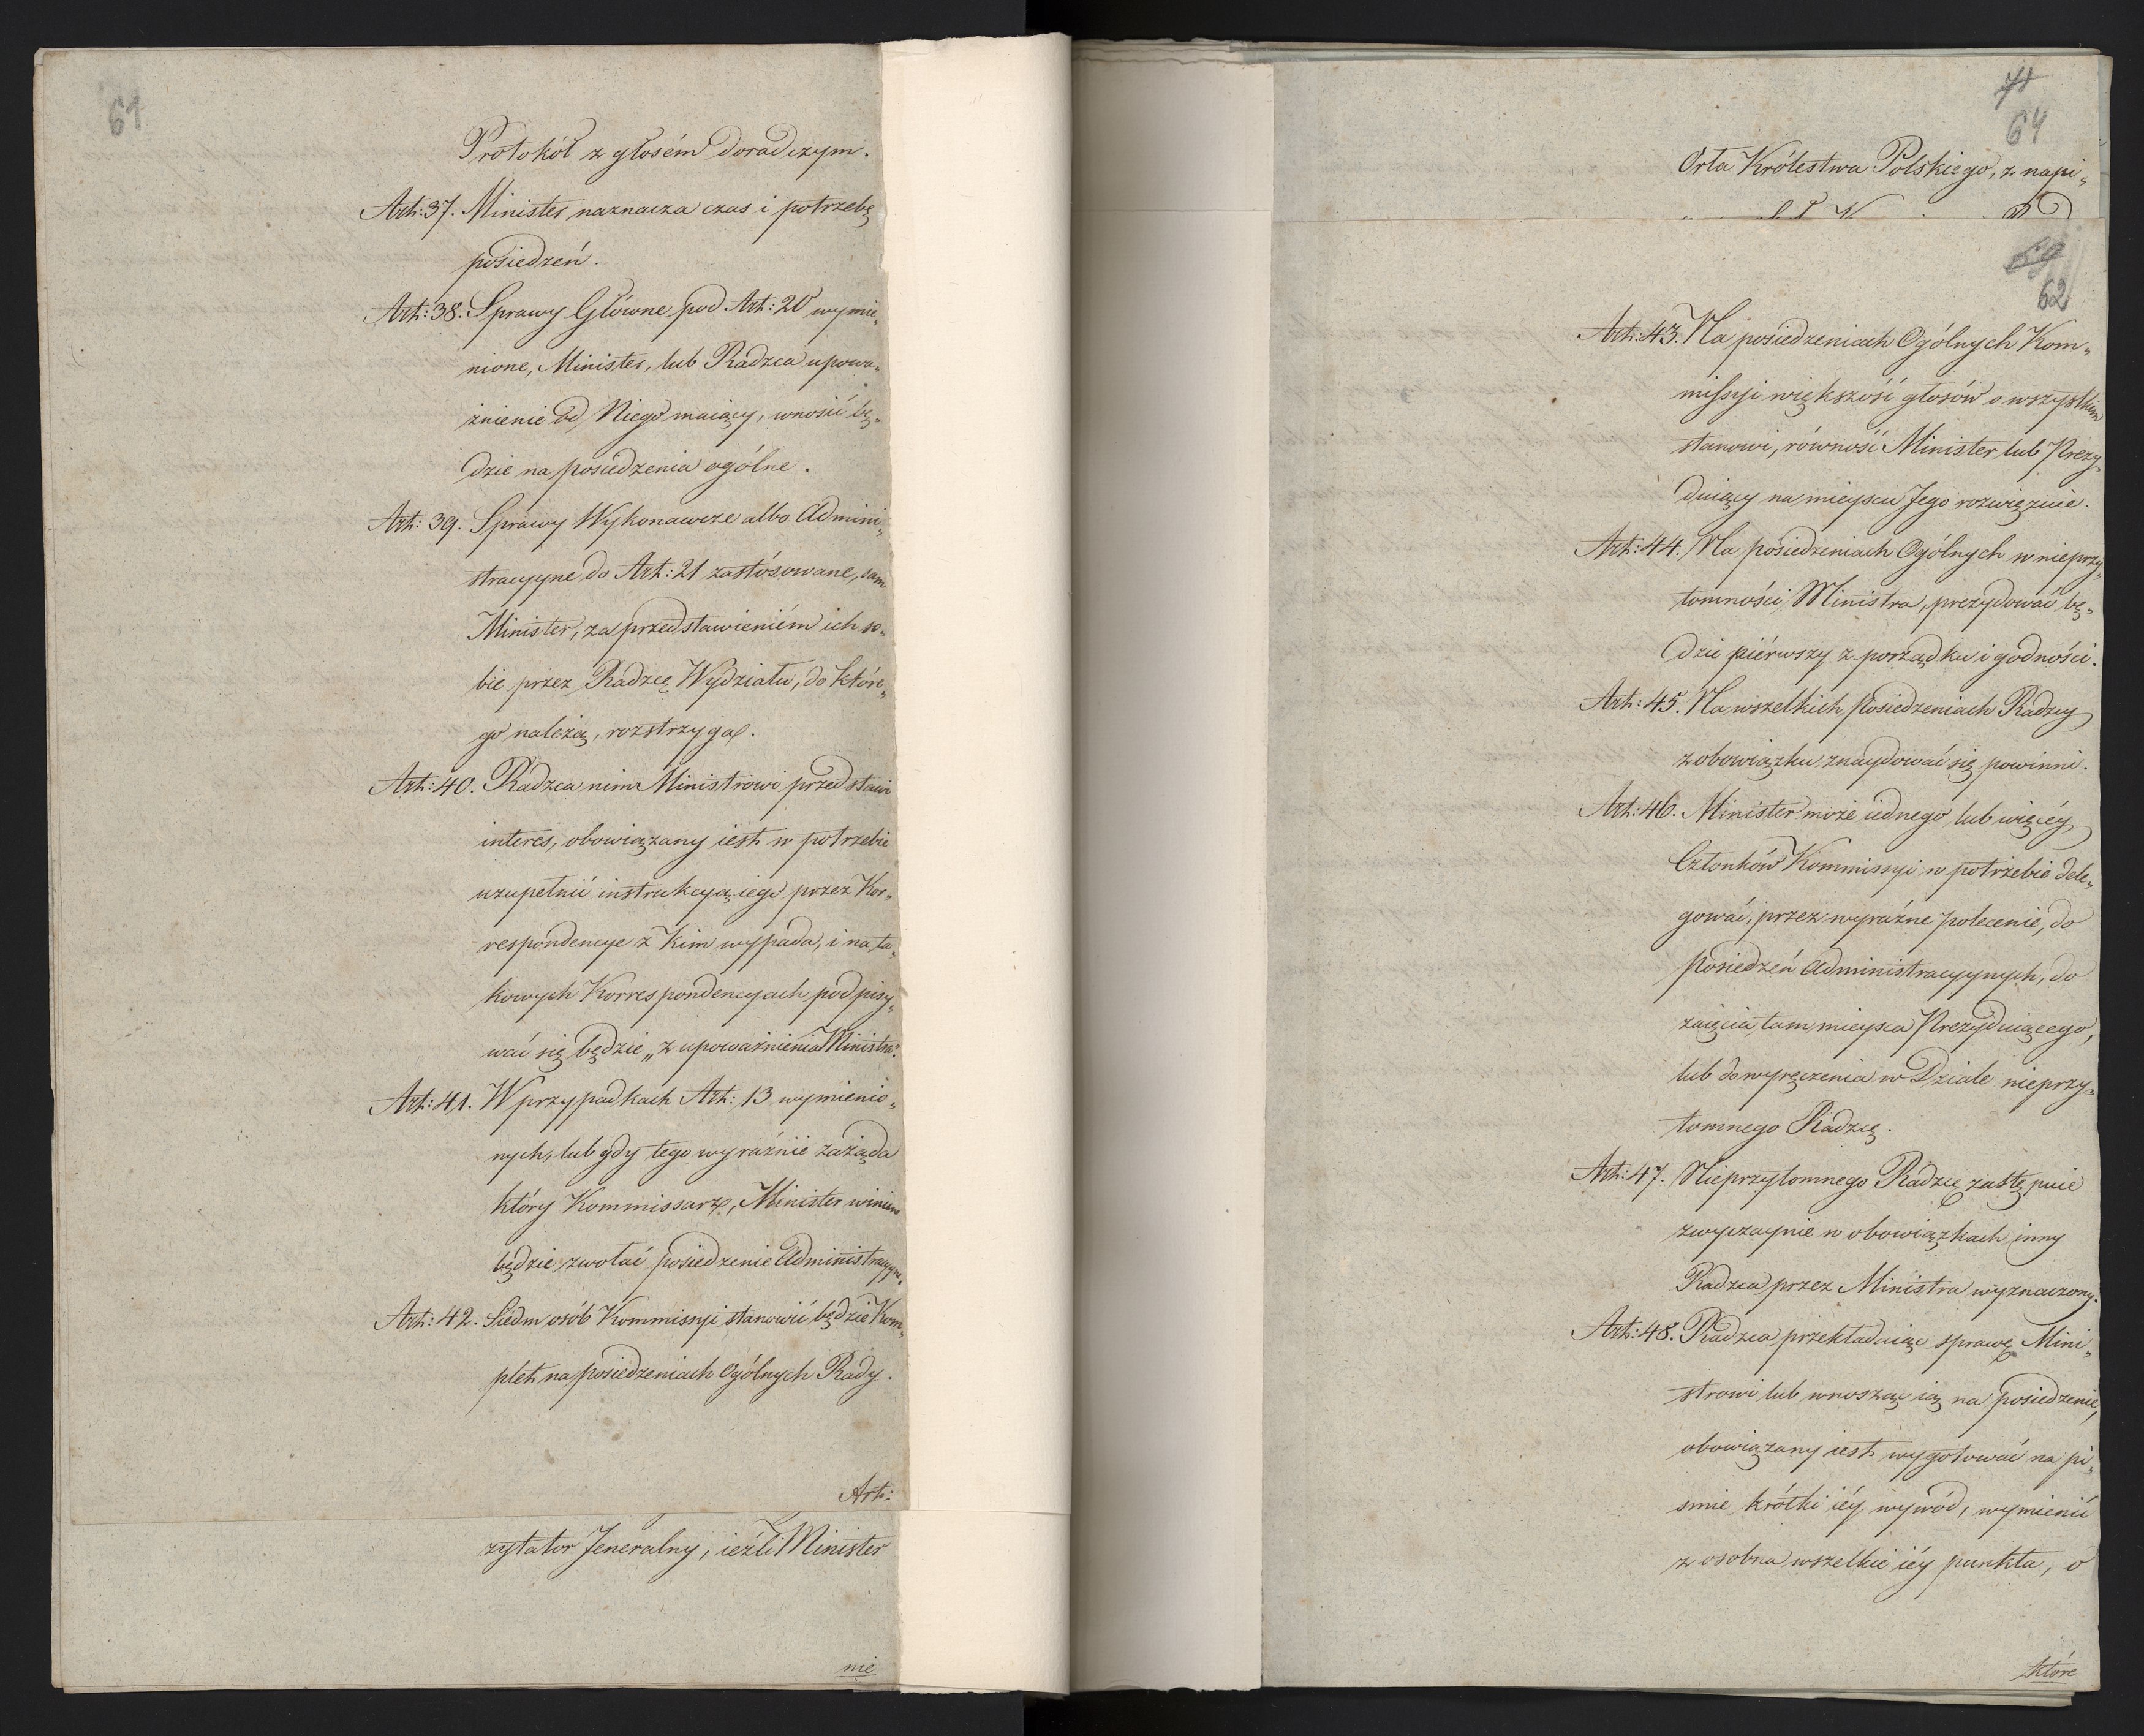 61
Protokół z głosém doradczym.
Art: 37. Minister naznacza czas i potrzebę
posiedzeń.
Art: 38. Sprawy Główne pod Art: 20 wymie„
nione, Minister, lub Radzca upowa„
żnienie od Niego maiący, wnosić bę„
dzie na posiedzenia ogólne.
Art: 39. Sprawy Wykonawcze albo Admini„
stracyyne do Art: 21 zastósowane, sam
Minister, za przedstawieniém ich so„
bie przez Radzcę Wydziału, do które„
go należą, rozstrzyga.
Art: 40. Radzca nim Ministrowi przedstawi
interes, obowiązany iest w potrzebie
uzupełnić instrukcyą iego przez Kor„
respondencye z kim wypada, i na ta„
kowych Korrespondencyach podpisy„
wać się będzie „z upoważnienia Ministra".
Art: 41. W przypadkach Art: 13 wymienio„
nych, lub gdy tego wyraźnie zażąda
który Kommissarz, Minister winien
będzie zwołać posiedzenie Administracyyne.
Art: 42. Siedm osób Kommissyi stanowić będzie Kom„
plet na posiedzeniach Ogólnych Rady.
Art:
zytator Jeneralny, ieźli Minister
nie
71
64
Orła Królestwa Polskiego, z napi„
69
62
Art: 43. Na posiedzeniach Ogólnych Kom„
missyi większość głosów o wszystkiem
stanowi, równość Minister lub Prezy„
duiący na mieyscu Jego rozwiązuie.
Art: 44. Na posiedzeniach Ogólnych w nieprzy„
tomności Ministra, prezydować bę„
dzie piérwszy z porządku i godności.
Art: 45. Na wszelkich Posiedzeniach Radzcy
z obowiązku znaydować się powinni.
Art: 46. Minister może iednego lub więcéy
Członków Kommissyi w potrzebie dele„
gować, przez wyraźne polecenie, do
Posiedzeń Administracyynych, do
zaięcia tam mieysca Prezyduiącego,
lub do wyręczenia w Dziale nieprzy„
tomnego Radzcę.
Art: 47. Nieprzytomnego Radzcę zastępuie
zwyczaynie w obowiązkach inny
Radzca przez Ministra wyznaczony.
Art: 48. Radzca przekładaiąc sprawę Mini„
strowi lub wnosząc ią na posiedzenie,
obowiązany iest wygotować na pi„
śmie krótki iéy wywód, wymienić
z osobna wszelkie iéy punkta, o
które